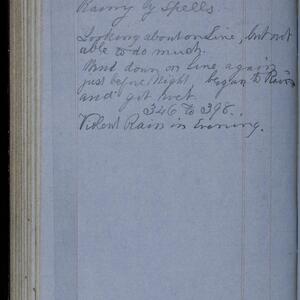 Rainy by Spells.
Looking about on Line, but not
able to do much.
Went down on Line again
just before Night, began to Rain
and got wet.
346 to 398.
Violent Rain in Evening.